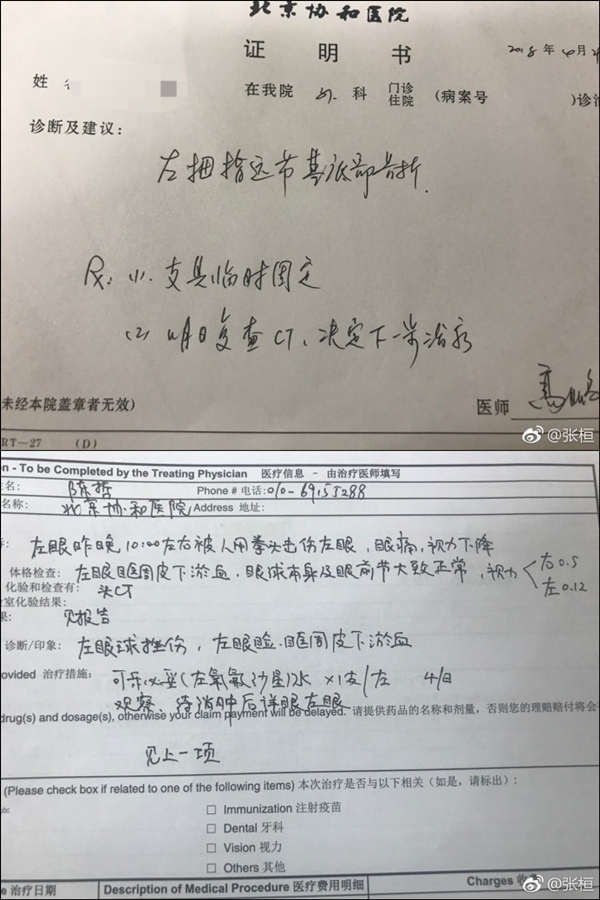 北京协和医院
证明书
2018年4月
姓
在我院 科 门诊 住院 (病案号 )诊治
诊断及建议：
左拇指远节基底部骨折.
Rx: (1). 支具临时固定
(2) 明日复查CT、决定下一步治疗
未经本院盖章者无效)
医师
RT-27 (D)
@张桓
on - To be Completed by the Treating Physician 医疗信息 - 由治疗医师填写
名: Phone # 电话: 010-69155288
名称: 北京协和医院 Address 地址:
左眼昨晚10:00左右被人用拳头击伤左眼，眼痛，视力下降
体格检查: 左眼眶周皮下淤血. 眼球本身及眼前节大致正常，视力 右0.5 左0.12
化验和检查有: 头CT
室化验结果:
果: 见报告
诊断/印象: 左眼球挫伤，左眼睑.眶周皮下淤血
ovided 治疗措施: 可乐必妥(左氧氟沙星)水 ×1支/左 4/日
观察、待消肿后详眼左眼
drug(s) and dosage(s), otherwise your claim payment will be delayed. 请提供药品的名称和剂量，否则您的理赔赔付将会
见上一项
(Please check box if related to one of the following items) 本次治疗是否与以下相关（如是，请标出）:
□ Immunization 注射疫苗
□ Dental 牙科
□ Vision 视力
□ Others 其他
e 治疗日期 Description of Medical Procedure 医疗费用明细 Charges
@张桓